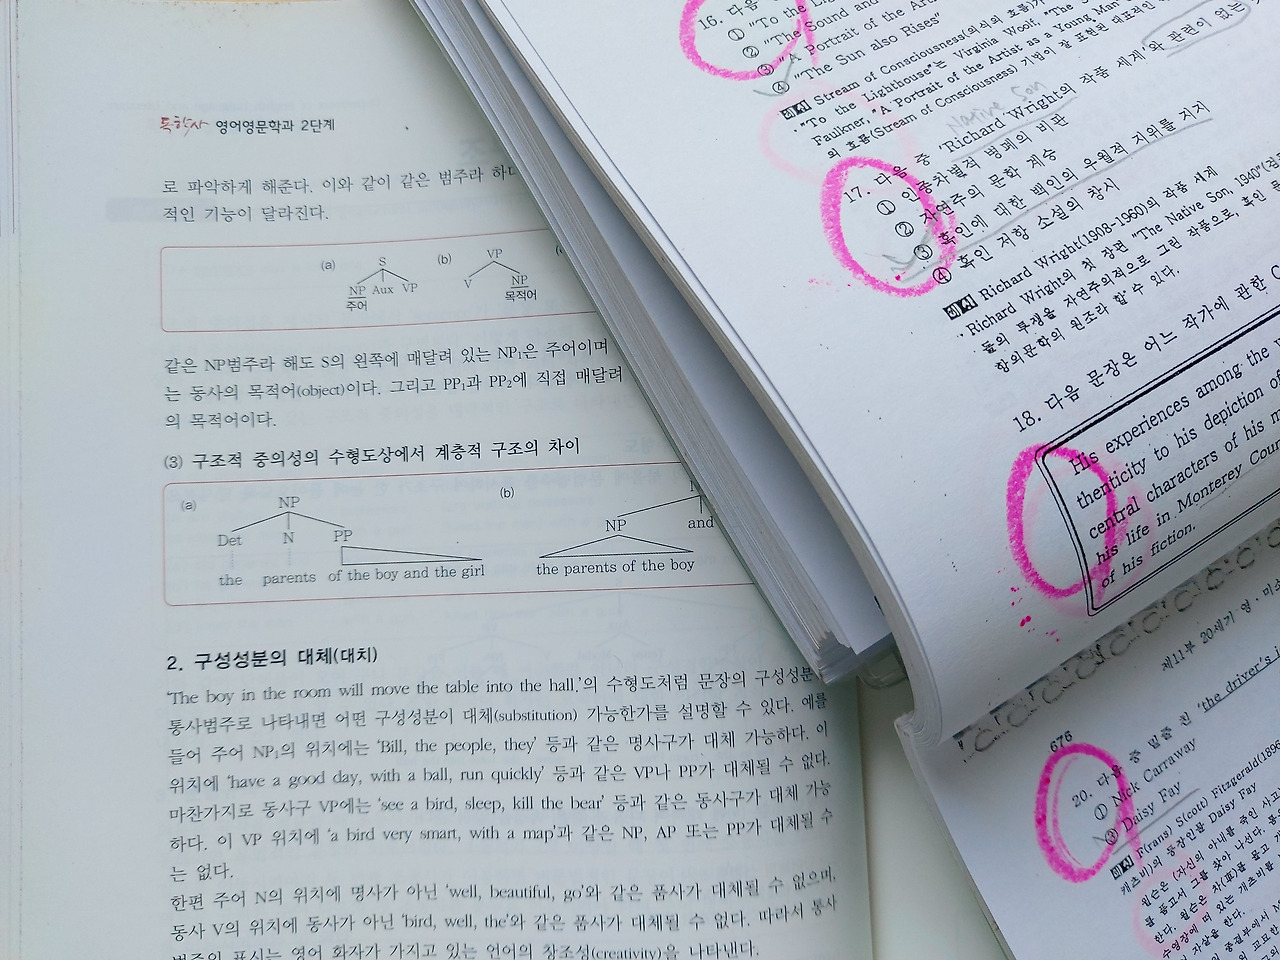 독학사 영어영문학과 2단계
로 파악하게 해준다. 이와 같이 같은 범주라 하
적인 기능이 달라진다.
(a) S
NP Aux VP
주어
(b) VP
V NP
목적어
같은 NP범주라 해도 S의 왼쪽에 매달려 있는 NP₁은 주어이며
는 동사의 목적어(object)이다. 그리고 PP₁과 PP₂에 직접 매달려
의 목적어이다.
(3) 구조적 중의성의 수형도상에서 계층적 구조의 차이
(a) NP
Det N PP
the parents of the boy and the girl
(b)
NP and
the parents of the boy
2. 구성성분의 대체(대치)
'The boy in the room will move the table into the hall.'의 수형도처럼 문장의 구성성분
통사범주로 나타내면 어떤 구성성분이 대체(substitution) 가능한가를 설명할 수 있다. 예를
들어 주어 NP₁의 위치에는 'Bill, the people, they' 등과 같은 명사구가 대체 가능하다. 이
위치에 'have a good day, with a ball, run quickly' 등과 같은 VP나 PP가 대체될 수 없다.
마찬가지로 동사구 VP에는 'see a bird, sleep, kill the bear' 등과 같은 동사구가 대체 가능
하다. 이 VP 위치에 'a bird very smart, with a map'과 같은 NP, AP 또는 PP가 대체될 수
는 없다.
한편 주어 N의 위치에 명사가 아닌 'well, beautiful, go'와 같은 품사가 대체될 수 없으며,
동사 V의 위치에 동사가 아닌 'bird, well, the'와 같은 품사가 대체될 수 없다. 따라서 통사
범주의 표시는 영어 화자가 가지고 있는 언어의 창조성(creativity)을 나타낸다.
16. 다음
① "To the
② "The Sound and
③ "A Portrait of the
④ "The Sun also Rises"
해설 Stream of Consciousness(의식의 흐름)
"To the Lighthouse"는 Virginia Woolf, "The
Faulkner, "A Portrait of the Artist as a Young Man"
의 흐름(Stream of Consciousness) 기법이 잘 표현된 대표적인
Native Son
17. 다음 중 'Richard Wright의 작품 세계'와 관련이 없는
① 인종차별적 병폐의 비판
② 자연주의 문학 계승
③ 흑인에 대한 백인의 우월적 지위를 지지
④ 흑인 저항 소설의 창시
해설 Richard Wright(1908-1960)의 작품 세계
Richard Wright의 첫 장편 "The Native Son, 1940"
들의 투쟁을 자연주의적으로 그린 작품으로, 흑인
항의문학의 원조라 할 수 있다.
18. 다음 문장은 어느 작가에 관한
His experiences among the
thenticity to his depiction of
central characters of his
his life in Monterey
of his fiction.
제11부 20세기 영·미소
676
20. 다음 중 밑줄 친 'the driver's
① Nick Carraway
③ Daisy Fay
해설 F(rans) S(cott) Fitzgerald(1896
개츠비)의 등장인물 Daisy Fay
윌슨은 (자신의 아내를 죽인 사고
를 품고서 그를 찾아 나선다.
한다. 윌슨은 차(車)를 몰고
수영장에 떠 있는 개츠비를
자살을 한다.